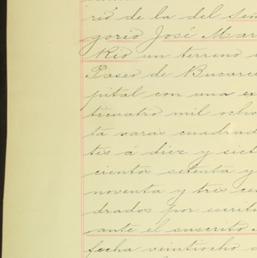 rió de la del Señ
gorio José Mar
Rio un terreno
Paseo de Bucare
pital con una ex
treinta mil ocho
ta varas cuadrad
tes á diez y siet
cientos setenta y
noventa y tres ce
drados por escrit
ante el suscrito
fecha veintiocho